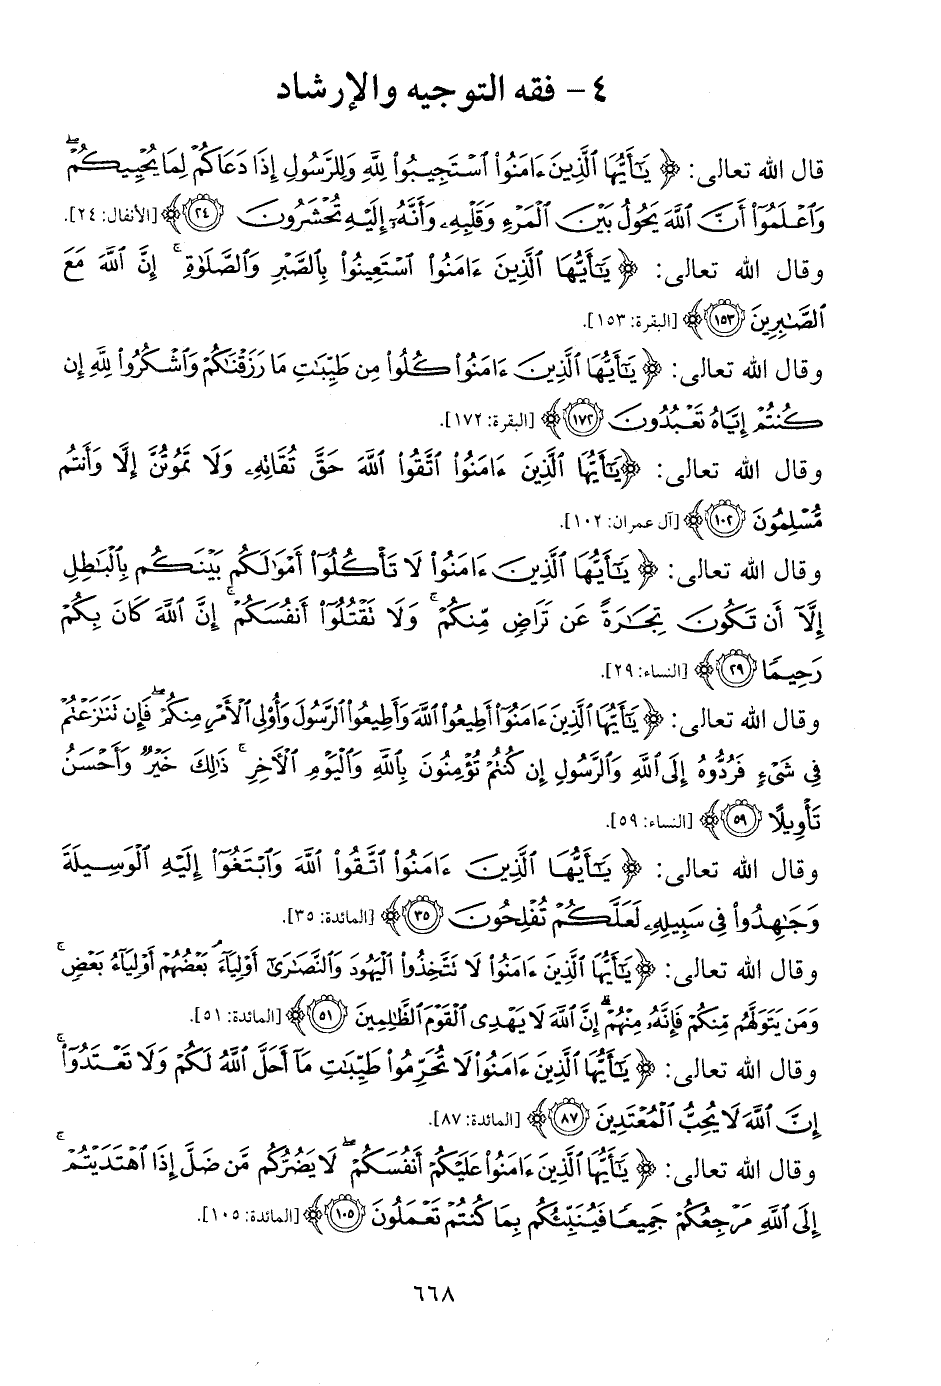 ٤ – فقه التوجيه والإرشاد
قال الله تعالى: ﴿ يَـٰٓأَيُّهَا ٱلَّذِينَ ءَامَنُوا۟ ٱسْتَجِيبُوا۟ لِلَّهِ وَلِلرَّسُولِ إِذَا دَعَاكُمْ لِمَا يُحْيِيكُمْ ۖ
وَٱعْلَمُوٓا۟ أَنَّ ٱللَّهَ يَحُولُ بَيْنَ ٱلْمَرْءِ وَقَلْبِهِۦ وَأَنَّهُۥٓ إِلَيْهِ تُحْشَرُونَ ٢٤ ﴾ [الأنفال: ٢٤].
وقال الله تعالى: ﴿ يَـٰٓأَيُّهَا ٱلَّذِينَ ءَامَنُوا۟ ٱسْتَعِينُوا۟ بِٱلصَّبْرِ وَٱلصَّلَوٰةِ ۚ إِنَّ ٱللَّهَ مَعَ
ٱلصَّـٰبِرِينَ ١٥٣ ﴾ [البقرة: ١٥٣].
وقال الله تعالى: ﴿ يَـٰٓأَيُّهَا ٱلَّذِينَ ءَامَنُوا۟ كُلُوا۟ مِن طَيِّبَـٰتِ مَا رَزَقْنَـٰكُمْ وَٱشْكُرُوا۟ لِلَّهِ إِن
كُنتُمْ إِيَّاهُ تَعْبُدُونَ ١٧٢ ﴾ [البقرة: ١٧٢].
وقال الله تعالى: ﴿ يَـٰٓأَيُّهَا ٱلَّذِينَ ءَامَنُوا۟ ٱتَّقُوا۟ ٱللَّهَ حَقَّ تُقَاتِهِۦ وَلَا تَمُوتُنَّ إِلَّا وَأَنتُم
مُّسْلِمُونَ ١٠٢ ﴾ [آل عمران: ١٠٢].
وقال الله تعالى: ﴿ يَـٰٓأَيُّهَا ٱلَّذِينَ ءَامَنُوا۟ لَا تَأْكُلُوٓا۟ أَمْوَٰلَكُم بَيْنَكُم بِٱلْبَـٰطِلِ
إِلَّآ أَن تَكُونَ تِجَـٰرَةً عَن تَرَاضٍ مِّنكُمْ ۚ وَلَا تَقْتُلُوٓا۟ أَنفُسَكُمْ ۚ إِنَّ ٱللَّهَ كَانَ بِكُمْ
رَحِيمًا ٢٩ ﴾ [النساء: ٢٩].
وقال الله تعالى: ﴿ يَـٰٓأَيُّهَا ٱلَّذِينَ ءَامَنُوٓا۟ أَطِيعُوا۟ ٱللَّهَ وَأَطِيعُوا۟ ٱلرَّسُولَ وَأُو۟لِى ٱلْأَمْرِ مِنكُمْ ۖ فَإِن تَنَـٰزَعْتُمْ
فِى شَىْءٍ فَرُدُّوهُ إِلَى ٱللَّهِ وَٱلرَّسُولِ إِن كُنتُمْ تُؤْمِنُونَ بِٱللَّهِ وَٱلْيَوْمِ ٱلْـَٔاخِرِ ۚ ذَٰلِكَ خَيْرٌ وَأَحْسَنُ
تَأْوِيلًا ٥٩ ﴾ [النساء: ٥٩].
وقال الله تعالى: ﴿ يَـٰٓأَيُّهَا ٱلَّذِينَ ءَامَنُوا۟ ٱتَّقُوا۟ ٱللَّهَ وَٱبْتَغُوٓا۟ إِلَيْهِ ٱلْوَسِيلَةَ
وَجَـٰهِدُوا۟ فِى سَبِيلِهِۦ لَعَلَّكُمْ تُفْلِحُونَ ٣٥ ﴾ [المائدة: ٣٥].
وقال الله تعالى: ﴿ يَـٰٓأَيُّهَا ٱلَّذِينَ ءَامَنُوا۟ لَا تَتَّخِذُوا۟ ٱلْيَهُودَ وَٱلنَّصَـٰرَىٰٓ أَوْلِيَآءَ ۘ بَعْضُهُمْ أَوْلِيَآءُ بَعْضٍ ۚ
وَمَن يَتَوَلَّهُم مِّنكُمْ فَإِنَّهُۥ مِنْهُمْ ۗ إِنَّ ٱللَّهَ لَا يَهْدِى ٱلْقَوْمَ ٱلظَّـٰلِمِينَ ٥١ ﴾ [المائدة: ٥١].
وقال الله تعالى: ﴿ يَـٰٓأَيُّهَا ٱلَّذِينَ ءَامَنُوا۟ لَا تُحَرِّمُوا۟ طَيِّبَـٰتِ مَآ أَحَلَّ ٱللَّهُ لَكُمْ وَلَا تَعْتَدُوٓا۟ ۚ
إِنَّ ٱللَّهَ لَا يُحِبُّ ٱلْمُعْتَدِينَ ٨٧ ﴾ [المائدة: ٨٧].
وقال الله تعالى: ﴿ يَـٰٓأَيُّهَا ٱلَّذِينَ ءَامَنُوا۟ عَلَيْكُمْ أَنفُسَكُمْ ۖ لَا يَضُرُّكُم مَّن ضَلَّ إِذَا ٱهْتَدَيْتُمْ ۚ
إِلَى ٱللَّهِ مَرْجِعُكُمْ جَمِيعًا فَيُنَبِّئُكُم بِمَا كُنتُمْ تَعْمَلُونَ ١٠٥ ﴾ [المائدة: ١٠٥].
٦٦٨